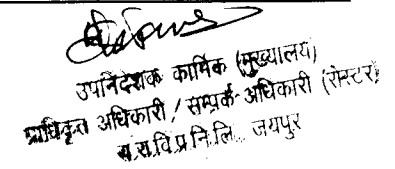 उपनिदेशक कार्मिक (मुख्यालय)
प्राधिकृत अधिकारी / सम्पर्क अधिकारी (रोस्टर)
रा.वि.प्र.नि.लि. जयपुर